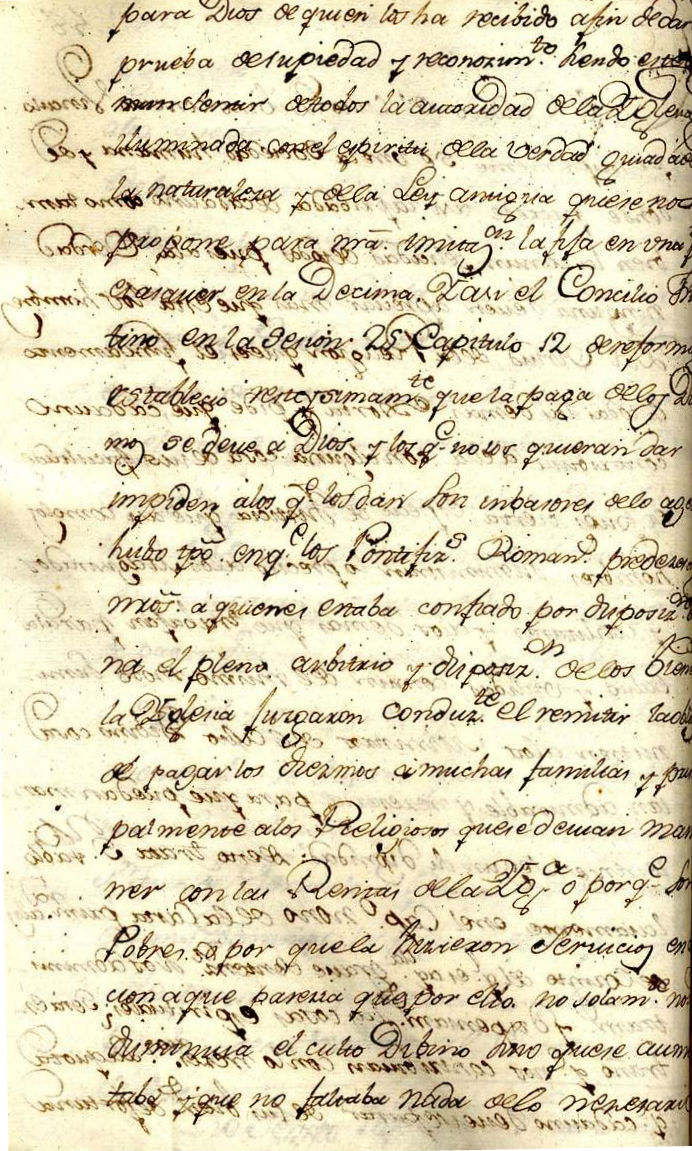 para Dios de quien los ha recibido a fin de dar
prueba de su piedad y reconozim.to siendo este
sentir de todos la autoridad de la Iglesia
iluminada con el espiritu de la verdad guiada de
la naturaleza y de la Ley antigua que se nos
propone para nrâ. imitaz.on la fija en una
en la Decima. Y asi el Concilio Tri
tino en la sesion 25 Capitulo 12 de reforma
establecio que la paga de los Di
mos se deve a Dios y los q.e no los quieran dar
impiden a los q.e los dan son inbasores de lo age
hubo tpô en q.e los Pontifiz.s Roman.s predezes
nrôs. a quienes estaba confiado por disposiz.on
na el pleno arbitrio y disposiz.on de los bienes
la Iglesia juzgaron conduz.te el remitir la
de pagar los diezmos a muchas familias y prin
palmente a los Religiosos que se devian man
ner con las Rentas de la Ig.a o por q.e son
Pobres, o por que la hizieron servicios en
cion a que parezia que por ello no solam.te no
diminuia el culto Dibino sino que se aum
taba y que no faltaba nada de lo nezesari